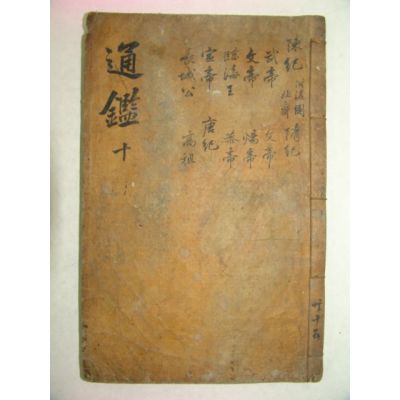 陳紀 北齊 隋紀
武帝 文帝
文帝 煬帝
臨海王 恭帝
宣帝 唐紀
長城公 高祖
通鑑 十